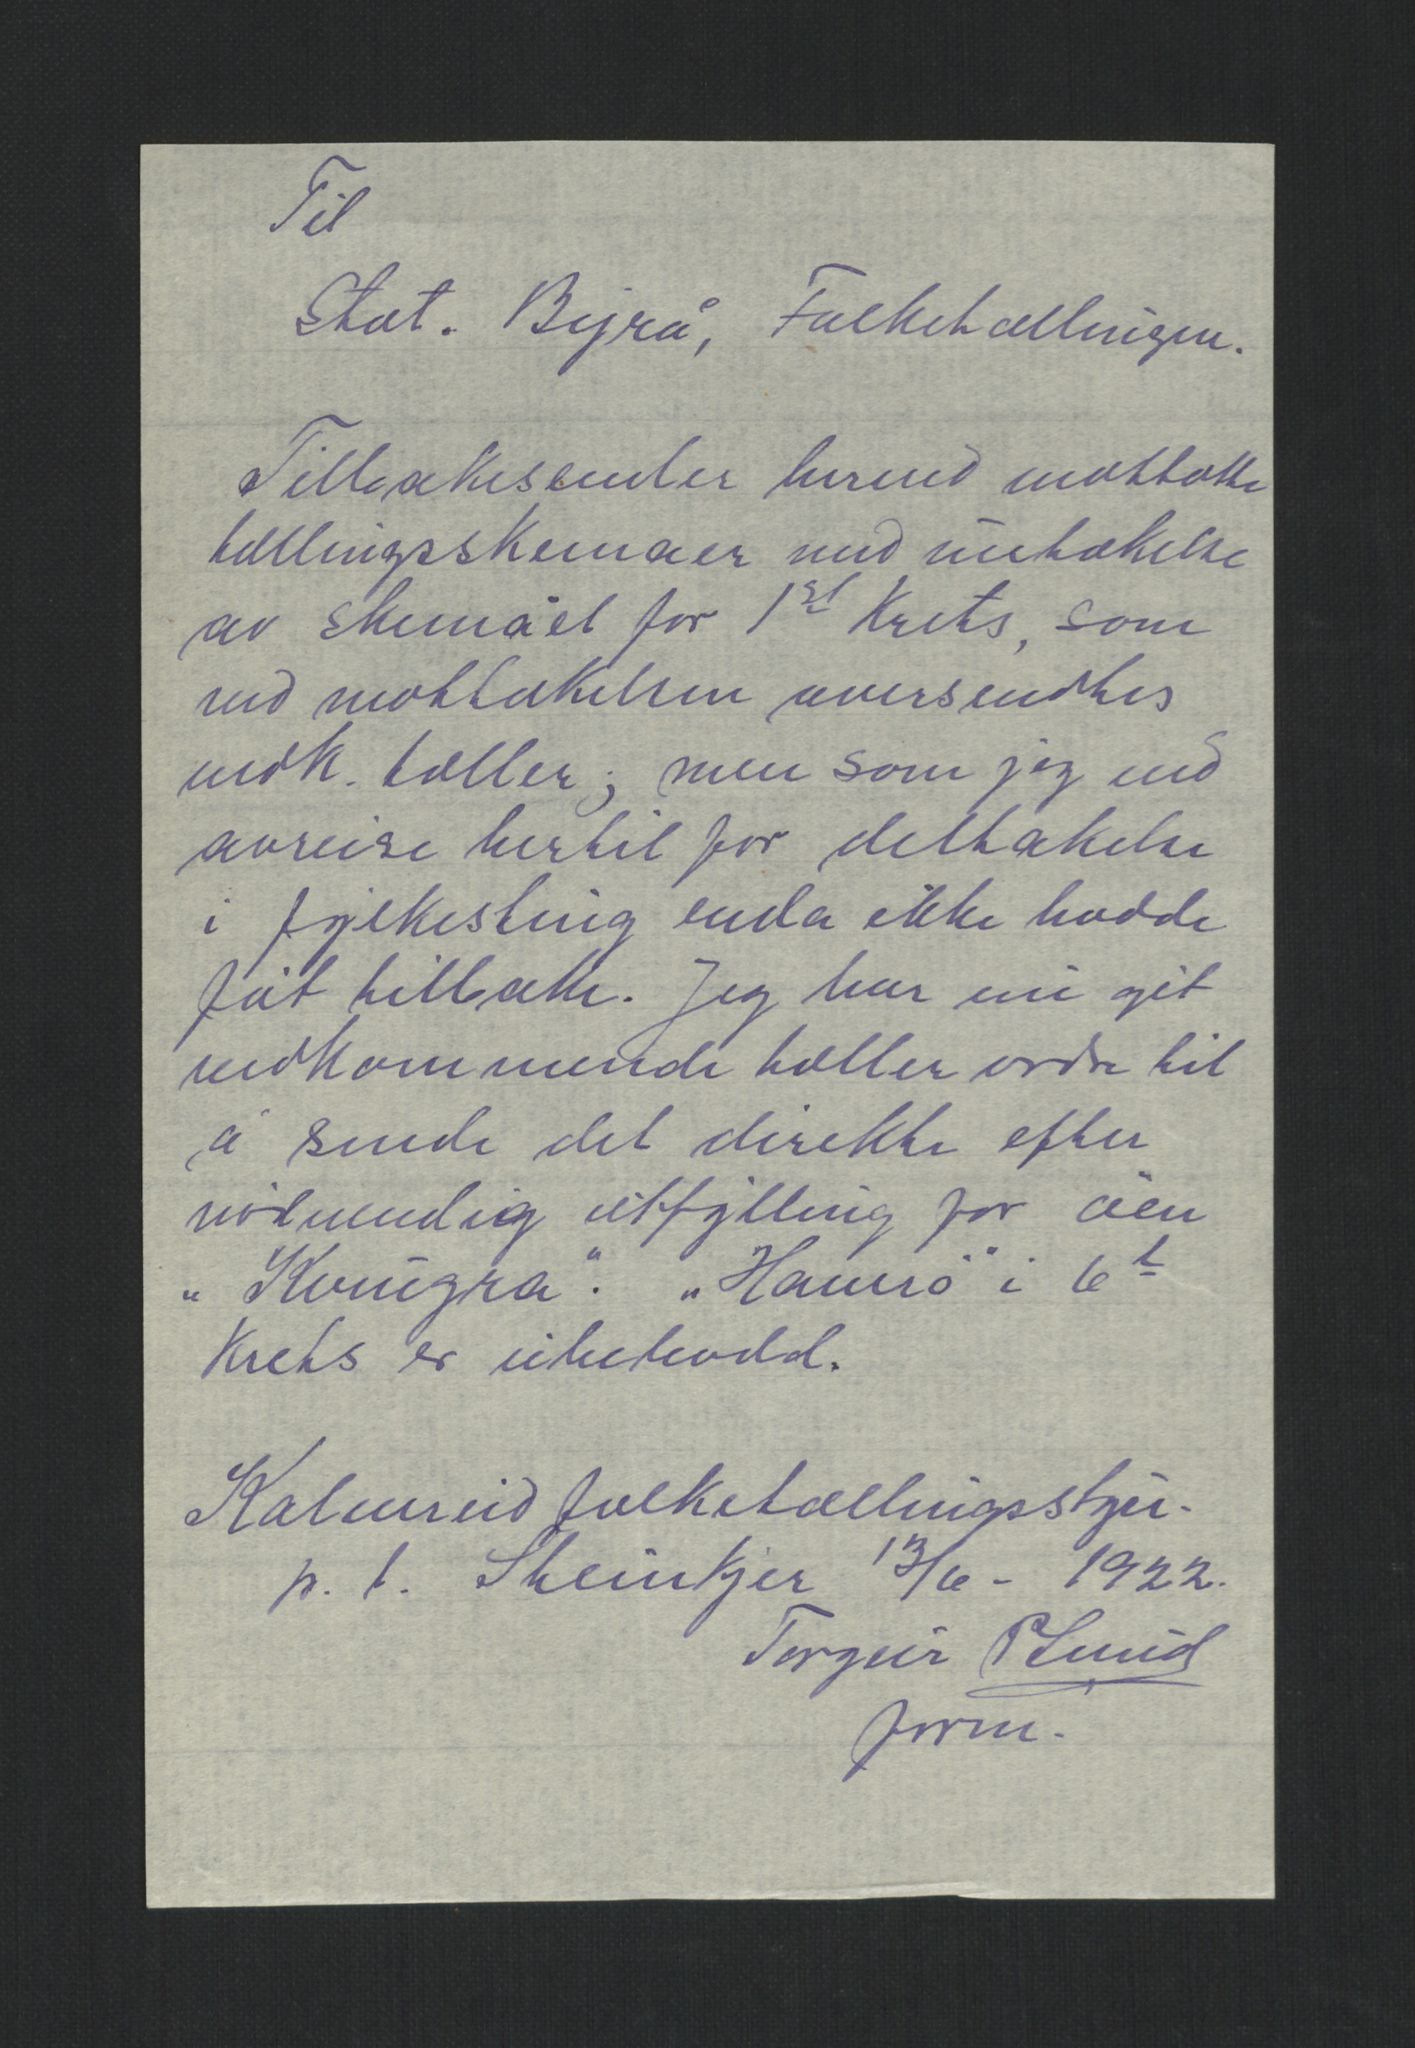 Til
Stat. Byrå, Folketællingen.
Tilbakesender herved mottatte
tællingsskemaer med untakelse
av skemået for 1st Krets, som
ved mottakelsen oversendtes
vedk. tæller; men som jeg ved
avreise hertil for deltakelse
i fylkesting enda ikke hadde
fåt tilbake. Jeg har nu git
vedkommende tæller ordre til
å sende det direkte efter
nødvendig utfylling for øen
"Kvingra". "Hamrø" i 6t
Krets er ubebodd.
Kolvereid folketællingsstyr.
p. t. Steinkjer 13/6 - 1922.
Torgeir P Lund
form.